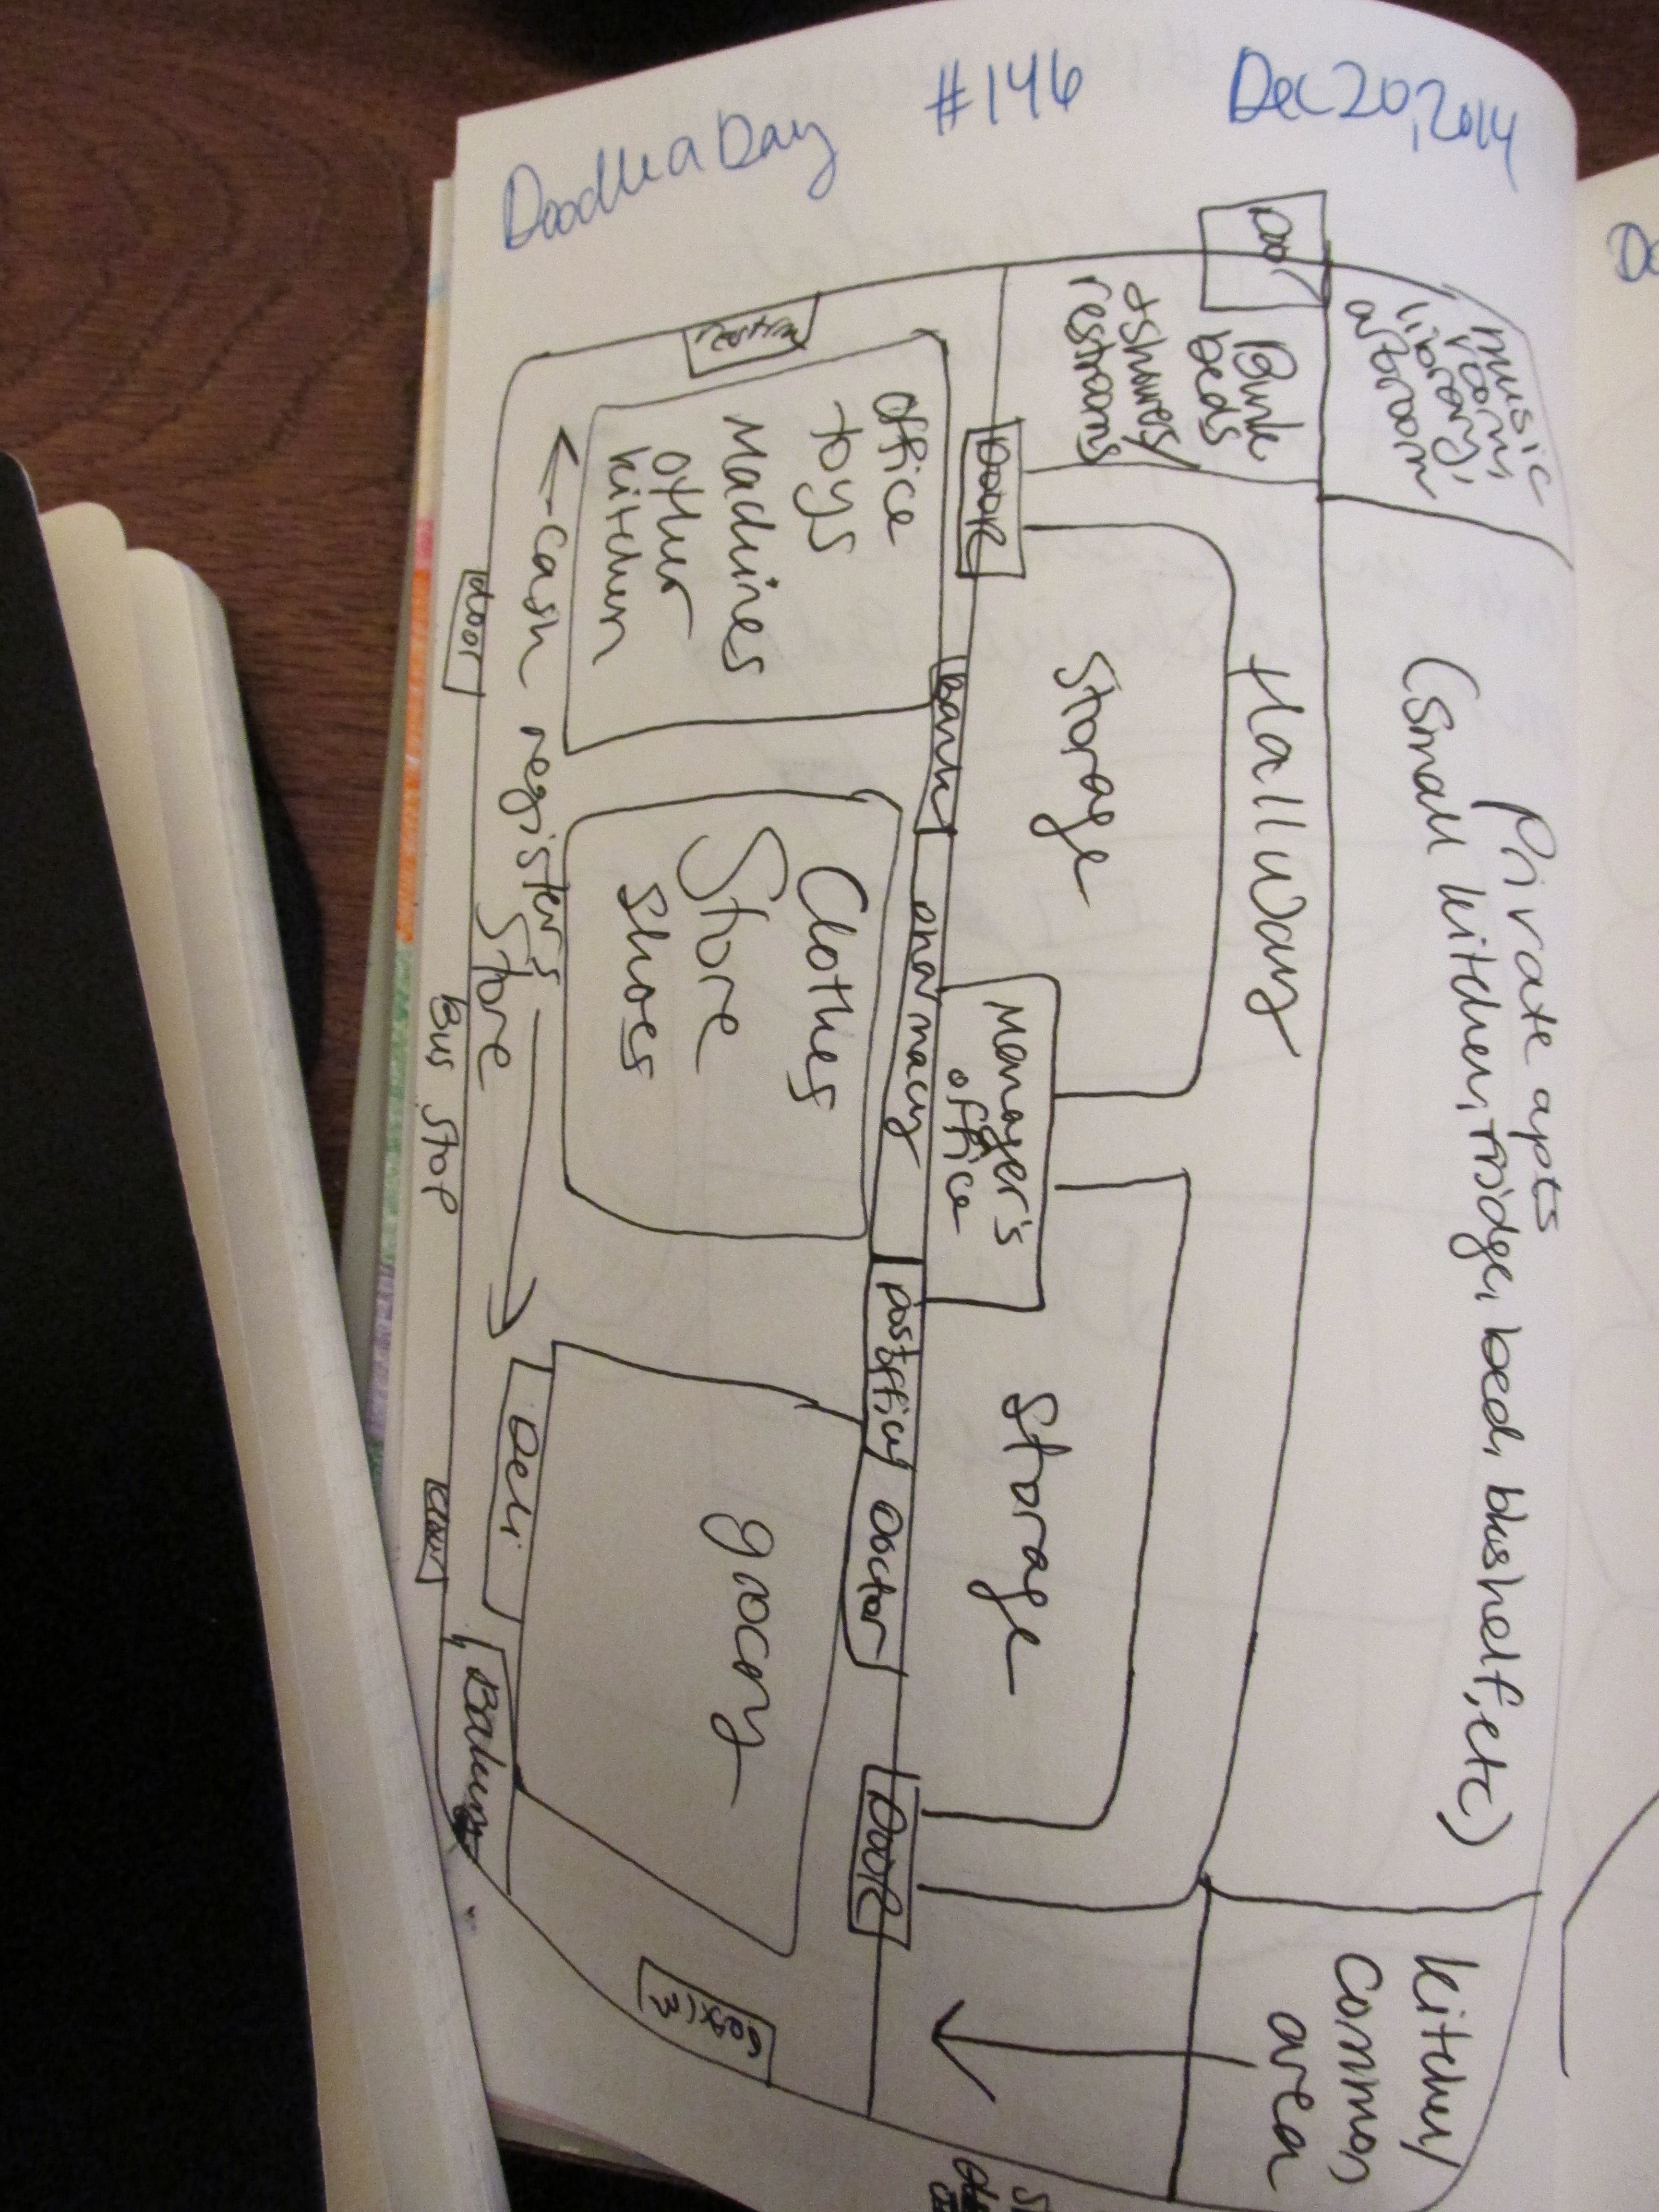 Doodle a Day #146 Dec 20, 2014
music
room,
library,
art room
Private apts
(small kitchen, fridge, bed, bkshelf, etc)
kitchen/
common
area
Door
Bunk
beds
+ showers/
restrooms
Hallway
DOOR
Storage
Manager's
office
Storage
DOOR
Bank
pharmacy
post office
Doctor
office
toys
Machines
other
kitchen
Clothes
Store
shoes
grocery
← cash registers →
Store
Deli
Bakery
door
Bus stop
door